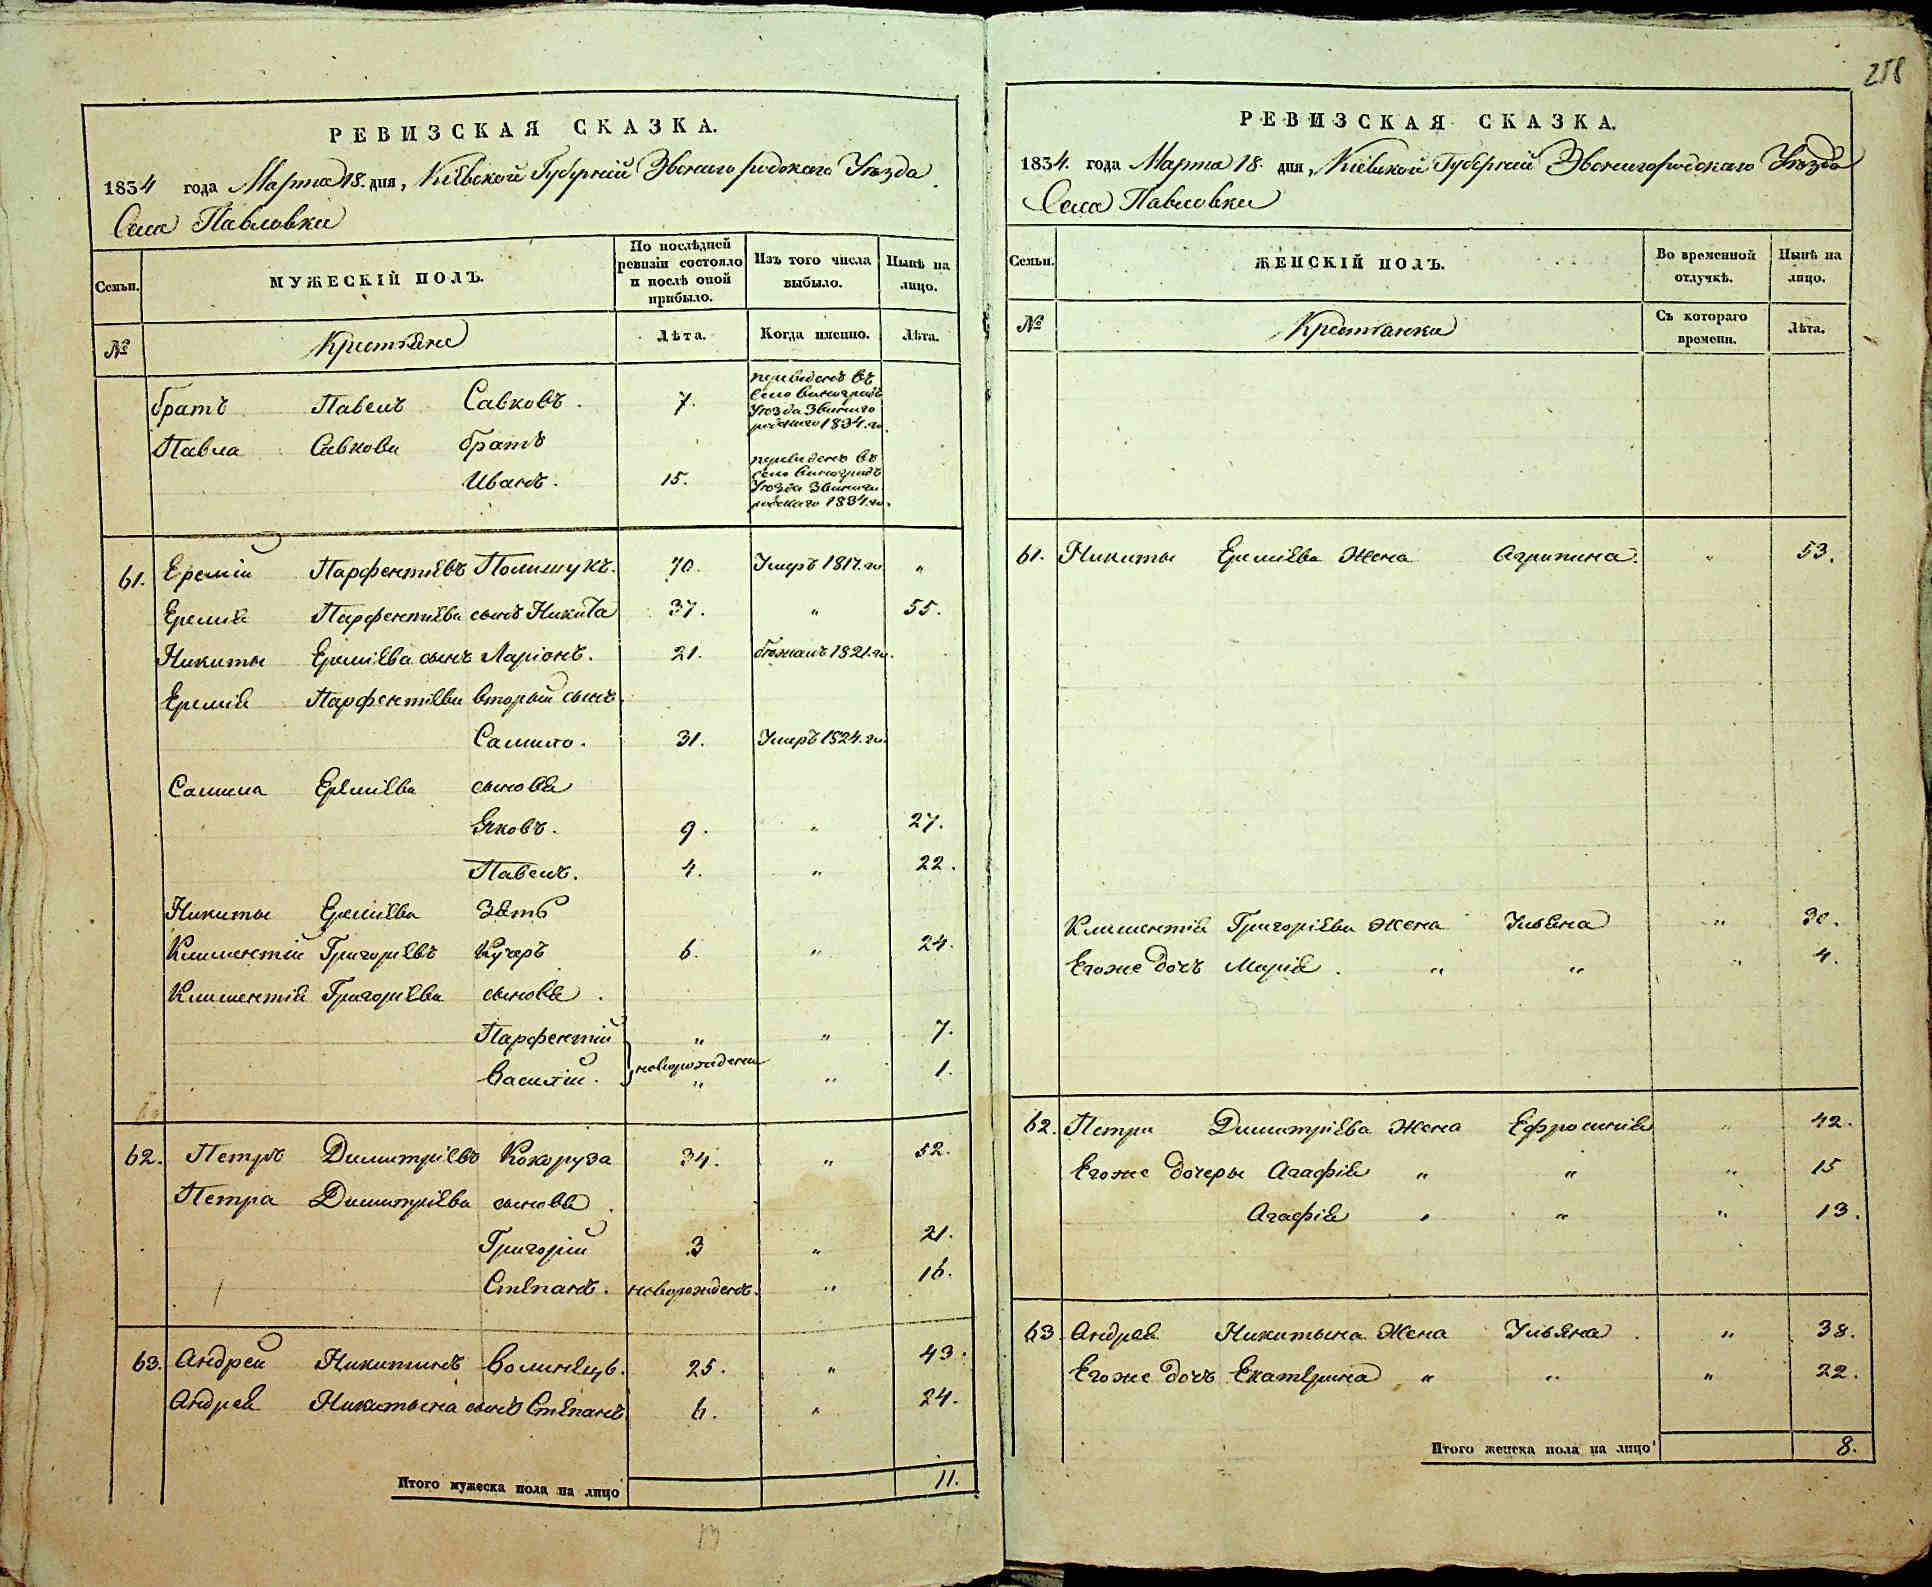 258
РЕВИЗСКАЯ СКАЗКА.
1834 года Марта 18. дня, Кіевской Губерніи Звенигородскаго Уѣзда
Села Павловки
Семьи.
МУЖЕСКІЙ ПОЛЪ.
По послѣдней ревизіи состояло и послѣ оной прибыло.
Изъ того числа выбыло.
Нынѣ на лицо.
№
Крестьяне
Лѣта.
Когда именно.
Лѣта.
братъ Павелъ Савковъ. 7. переведенъ въ
село Виноградъ
Уѣзда Звениго
родскаго 1834. го.
Павла Савкова братъ
Иванъ. 15. переведенъ въ
село Виноградъ
Уѣзда Звениго
родскаго 1834. го.
61. Еремій Парфентіевъ Полишукъ. 70. Умеръ 1817. го „
Еремія Парфентіева сынъ Никита 37. „ 55.
Никиты Ереміева сынъ Ларіонъ. 21. бѣжалъ 1821. го.
Еремія Парфентіева вторый сынъ
Самило. 31. Умеръ 1824. го.
Самила Ереміева сыновья
Яковъ. 9. „ 27.
Павелъ. 4. „ 22.
Никиты Ереміева Зять
Климентій Григоріевъ Кучеръ 6. „ 24.
Климентія Григоріева сыновья.
Парфентій „ „ 7.
новорождены
Василій. „ „ 1.
62. Петръ Димитріевъ Кокоруза 34. „ 52.
Петра Димитріева сыновья
Григорій 3 „ 21.
Степанъ. новорожденъ. „ 16.
63. Андрей Никитинъ Волинецъ. 25. „ 43.
Андрея Никитына сынъ Степанъ 6. „ 24.
Итого мужеска пола на лицо 11.
13
РЕВИЗСКАЯ СКАЗКА.
1834. года Марта 18. дня, Кіевской Губерніи Звенигородскаго Уѣзда
Села Павловки
Семьи.
ЖЕНСКІЙ ПОЛЪ.
Во временной отлучкѣ.
Нынѣ на лицо.
№
Крестьянки
Съ котораго времени.
Лѣта.
61. Никиты Ереміева Жена Агрипина. „ 53.
Климентія Григоріева жена Ульяна „ 30.
Егоже дочъ Марія. „ „ „ 4.
62. Петра Димитріева Жена Ефросинія „ 42.
Егоже дочеры Агафія „ „ „ 15
Агафія „ „ „ 13.
63. Андрея Никитына Жена Ульяна. „ 38.
Егоже дочъ Екатерина „ „ „ 22.
Итого женска пола на лицо 8.